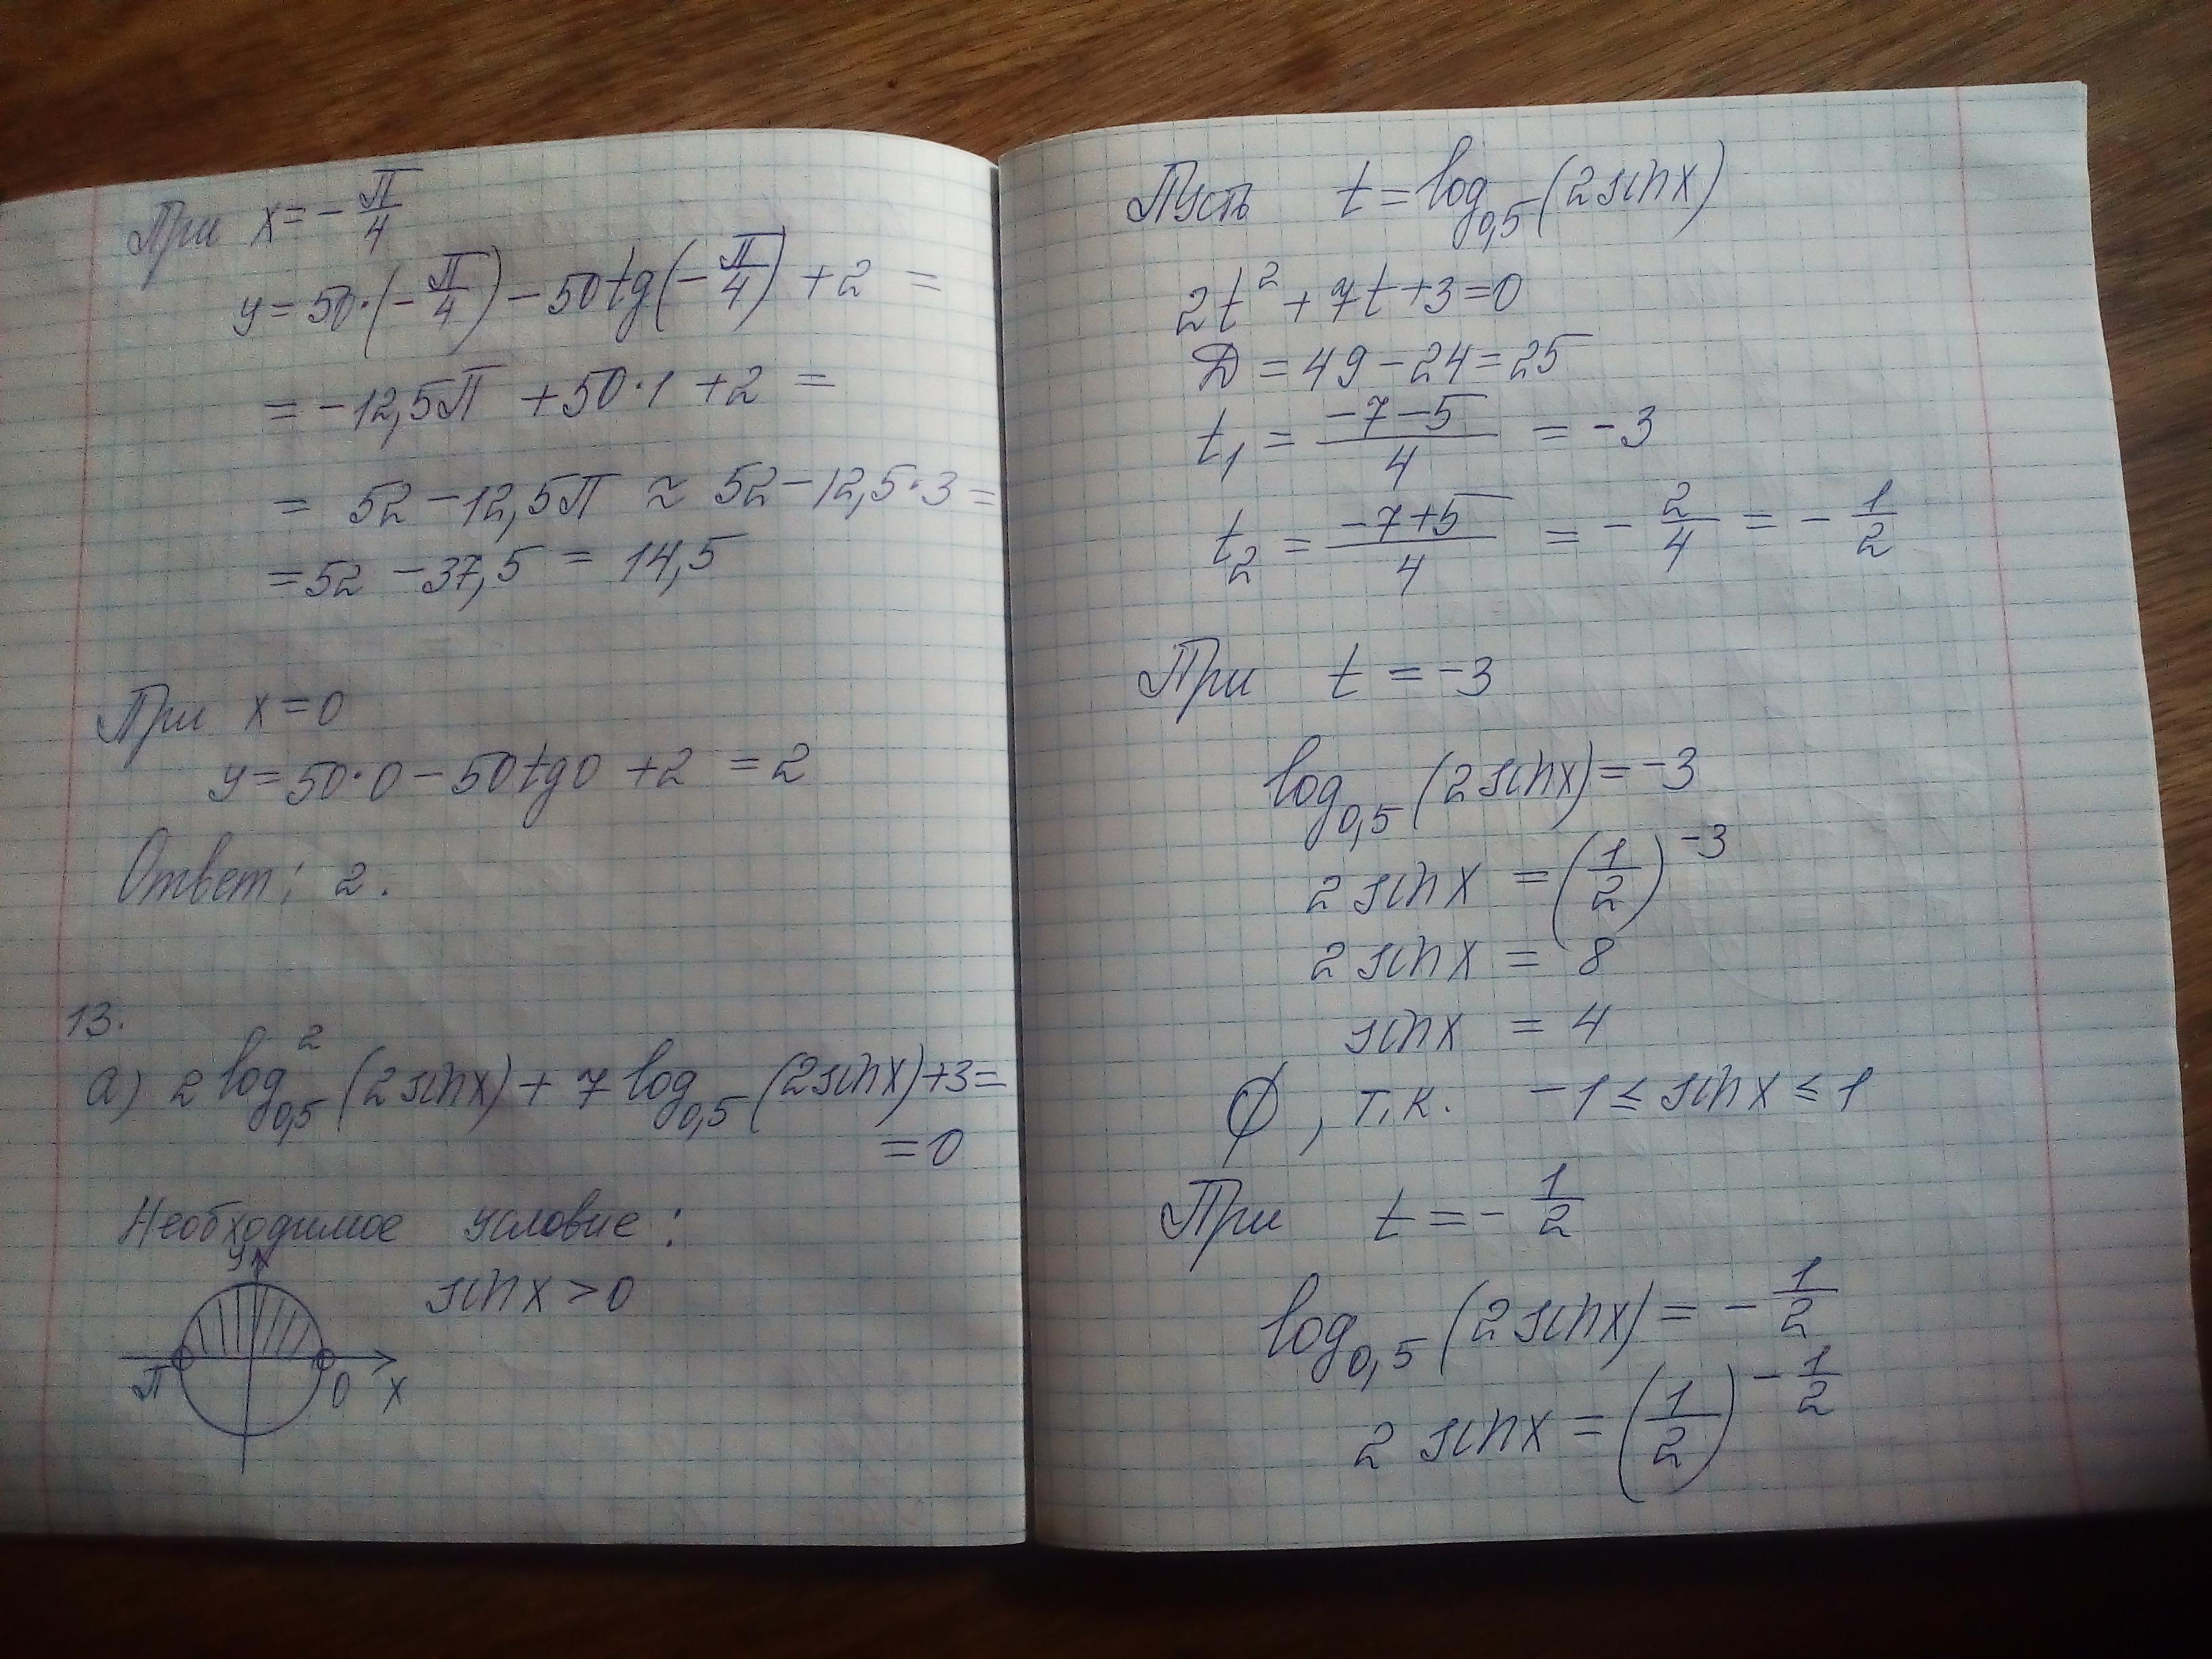 При x = -π/4
y = 50·(-π/4) - 50tg(-π/4) + 2 =
= -12,5π + 50·1 + 2 =
= 52 - 12,5π ≈ 52 - 12,5·3 =
= 52 - 37,5 = 14,5
При x = 0
y = 50·0 - 50tg0 + 2 = 2
Ответ: 2.
13.
а) 2 log²₀,₅ (2 sin x) + 7 log₀,₅ (2 sin x) + 3 =
= 0
Необходимое условие:
y
sin x > 0
π 0 x
Пусть t = log₀,₅ (2 sin x)
2t² + 7t + 3 = 0
D = 49 - 24 = 25
t₁ = (-7-5)/4 = -3
t₂ = (-7+5)/4 = -2/4 = -1/2
При t = -3
log₀,₅ (2 sin x) = -3
2 sin x = (1/2)⁻³
2 sin x = 8
sin x = 4
∅, т.к. -1 ≤ sin x ≤ 1
При t = -1/2
log₀,₅ (2 sin x) = -1/2
2 sin x = (1/2)^(-1/2)